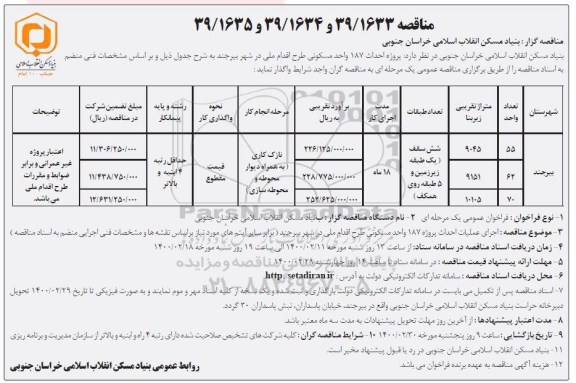 مناقصه ۳۹/۱۶۳۳ و ۳۹/۱۶۳۴ و ۳۹/۱۶۳۵
مناقصه گزار: بنیاد مسکن انقلاب اسلامی خراسان جنوبی
بنیاد مسکن انقلاب اسلامی خراسان جنوبی در نظر دارد: پروژه احداث ۱۸۷ واحد مسکونی طرح اقدام ملی در شهر بیرجند به شرح جدول ذیل و بر اساس مشخصات فنی منضم
به اسناد مناقصه را از طریق برگزاری مناقصه عمومی یک مرحله ای به مناقصه گران واجد شرایط واگذار نماید:
شهرستان | تعداد واحد | متراژ تقریبی زیربنا | تعدادطبقات | مدت اجرای کار | برآورد تقریبی به ریال | مرحله انجام کار | نحوه واگذاری کار | رشته و پایه پیمانکار | مبلغ تضمین شرکت در مناقصه (ریال) | توضیحات
بیرجند | ۵۵ | ۹۰۴۵ | شش سقف (یک طبقه زیرزمین و ۵ طبقه روی همکف) | ۱۸ ماه | ۲۲۶/۱۲۵/۰۰۰/۰۰۰ | نازک کاری (به همراه دیوار محوطه و محوطه سازی) | قیمت مقطوع | حداقل رتبه ۴ ابنیه و بالاتر | ۱۱/۳۰۶/۲۵۰/۰۰۰ | اعتبار پروژه غیر عمرانی و برابر ضوابط و مقررات طرح اقدام ملی می باشد.
۶۲ | ۹۱۵۱ | ۲۲۸/۷۷۵/۰۰۰/۰۰۰ | ۱۱/۴۳۸/۷۵۰/۰۰۰
۷۰ | ۱۰۱۰۵ | ۲۵۲/۶۲۵/۰۰۰/۰۰۰ | ۱۲/۶۳۱/۲۵۰/۰۰۰
۱- نوع فراخوان: فراخوان عمومی یک مرحله ای ۲- نام دستگاه مناقصه گزار: بنیاد مسکن انقلاب اسلامی خراسان جنوبی
۳- موضوع مناقصه: اجرای عملیات احداث پروژه ۱۸۷ واحد مسکونی طرح اقدام ملی در شهر بیرجند (برابر سایر آیتم های مورد نیاز براساس نقشه ها و مشخصات فنی اجرایی منضم به اسناد مناقصه)
۴- زمان دریافت اسناد مناقصه در سامانه ستاد: از ساعت ۱۳ روز شنبه مورخه ۱۴۰۰/۰۲/۱۱ الی ساعت ۱۹ روز شنبه مورخه ۱۴۰۰/۰۲/۱۸
۵- مهلت ارائه پیشنهاد قیمت مناقصه: در سامانه ستاد تا ساعت ۱۴ روز چهارشنبه ۱۴۰۰/۰۲/۲۹
۶- محل دریافت اسناد مناقصه: سامانه تدارکات الکترونیکی دولت به آدرس: http://setadiran.ir
۷- اسناد مناقصه پس از تکمیل می بایست در سامانه تدارکات الکترونیکی دولت بارگذاری و یک نسخه از کلیه اسناد مهر و موم نمایند و به صورت فیزیکی تا تاریخ ۱۴۰۰/۰۲/۲۹ تحویل
دبیرخانه حراست بنیاد مسکن انقلاب اسلامی خراسان جنوبی واقع در بیرجند، خیابان پاسداران، نبش پاسداران ۳۰ گردد.
۸- مدت اعتبار پیشنهادها: از آخرین روز مهلت تحویل پیشنهادات به مدت سه ماه معتبر باشد.
۹- تاریخ بازگشایی: ساعت ۹ روز پنجشنبه مورخه ۱۴۰۰/۰۲/۳۰ ۱۰- شرایط مناقصه گران: کلیه شرکت های تشخیص صلاحیت شده دارای رتبه ۴ راه و ابنیه و بالاتر از سازمان مدیریت و برنامه ریزی
۱۱- بنیاد مسکن انقلاب اسلامی خراسان جنوبی در رد یا قبول پیشنهاد مختار است.
۱۲- هزینه آگهی مناقصه به عهده برنده فراخوان می باشد.
روابط عمومی بنیاد مسکن انقلاب اسلامی خراسان جنوبی